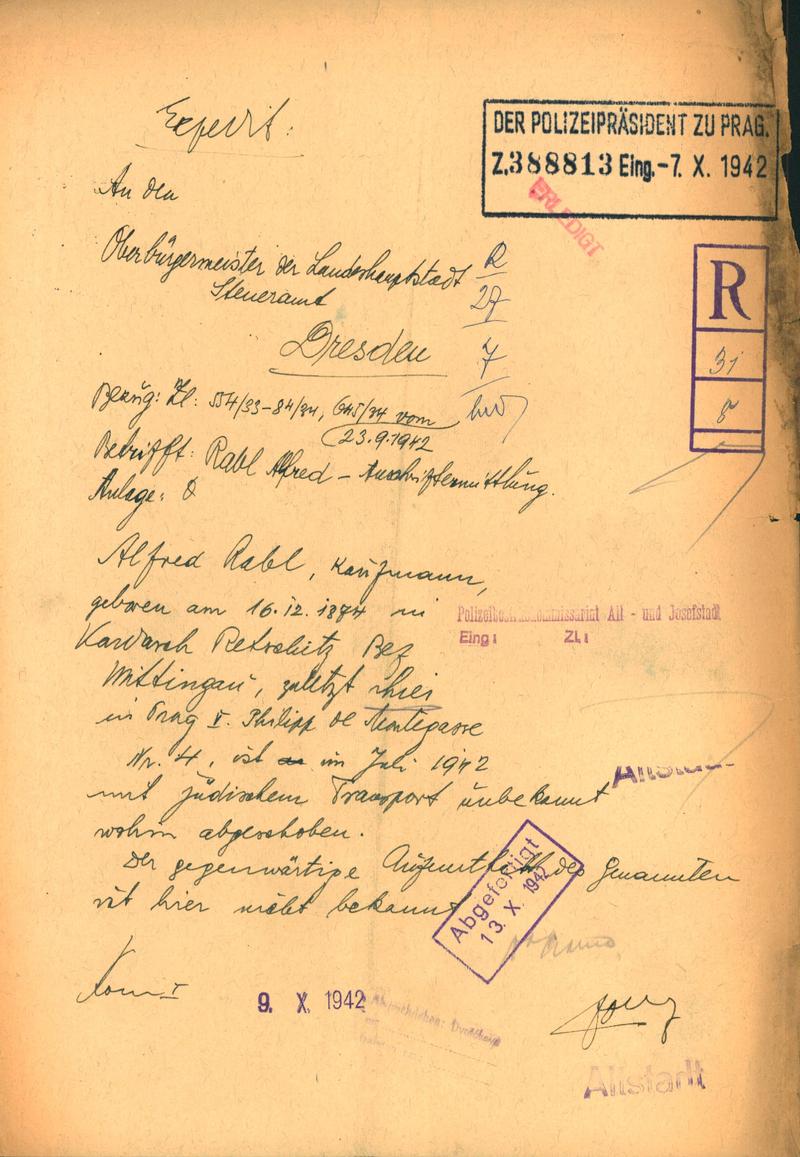 Expedit:
DER POLIZEIPRÄSIDENT ZU PRAG.
Z. 388813 Eing. -7. X. 1942
ERLEDIGT
An den
Oberbürgermeister der Landeshauptstadt
Steueramt
Dresden
R
27
7
R
31
8
Bezug: Zl: 554/33-84/34, 645/34 vom
23.9.1942
Betrifft: Rabl Alfred - Anschriftermittlung.
Anlage: 0
Alfred Rabl, Kaufmann,
geboren am 16.12.1874 in
Kardasch Retschitz Bez
Wittingau, zuletzt hier
in Prag V. Philipp de Montegasse
Nr. 4, ist im Juli 1942
mit jüdischem Transport unbekannt
wohin abgeschoben.
Der gegenwärtige Aufenthalt des Genannten
ist hier nicht bekannt
Polizeibezirkskommissariat Alt - und Josefstadt
Eing: Zl.:
Altstadt
Abgefertigt
13. X. 1942
9. X. 1942
Altstadt